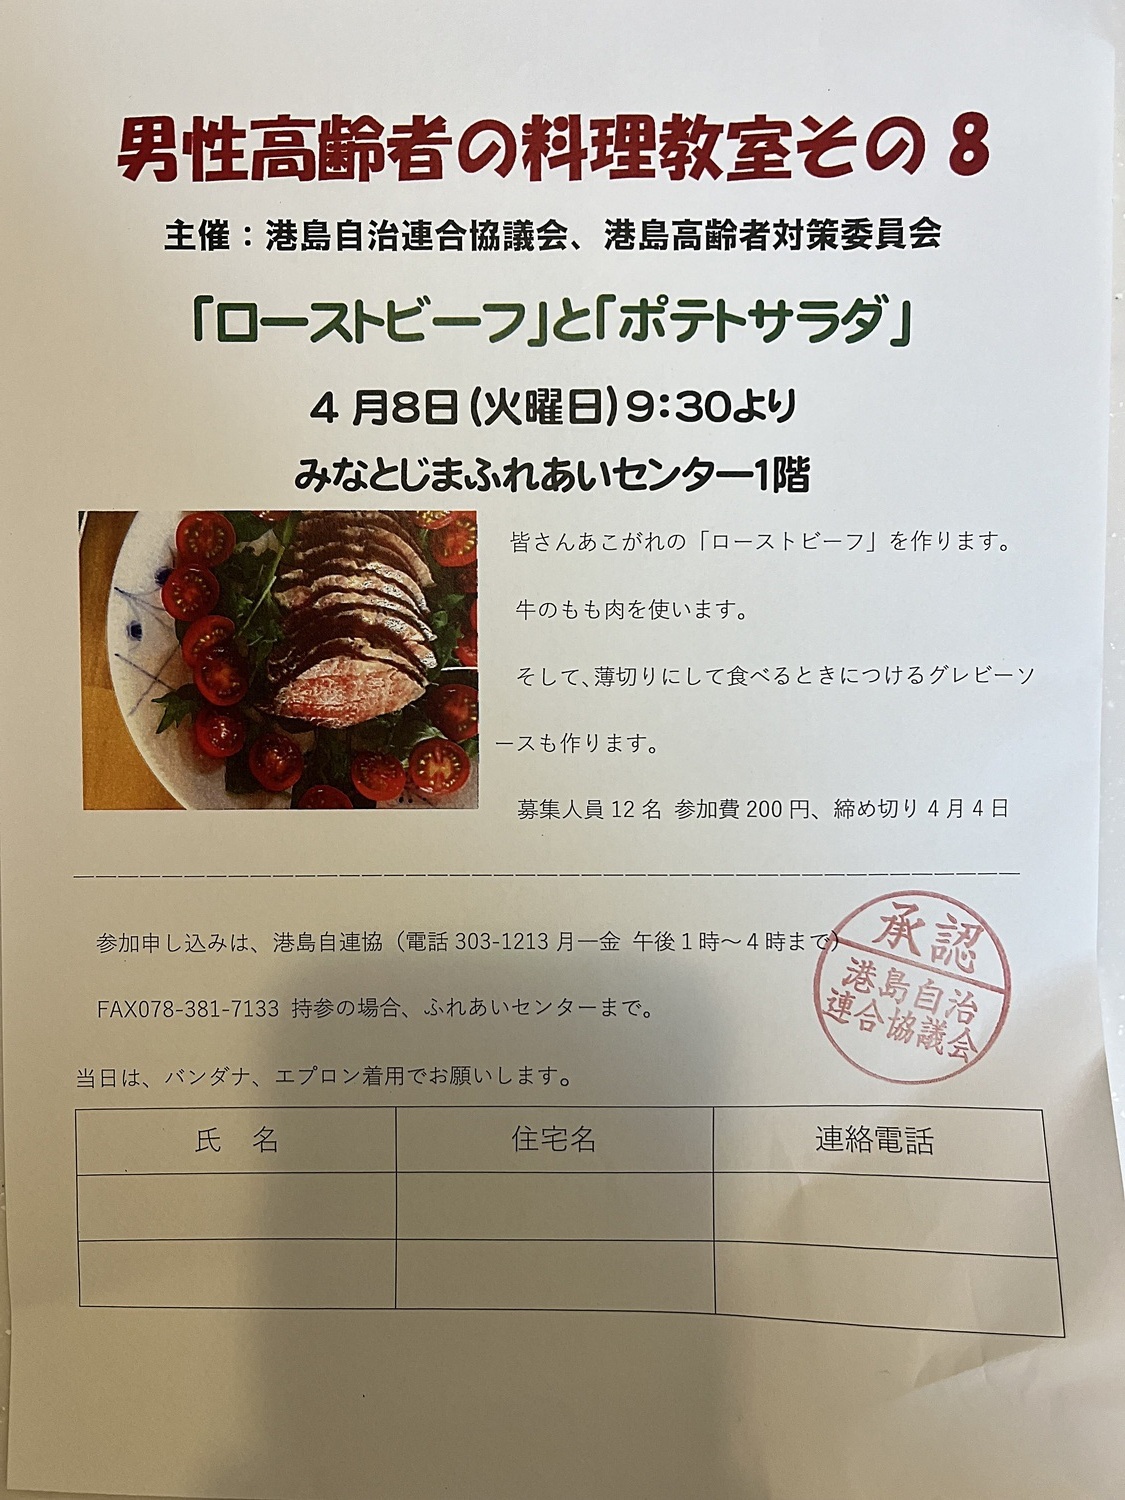 男性高齢者の料理教室その 8
主催：港島自治連合協議会、港島高齢者対策委員会
「ローストビーフ」と「ポテトサラダ」
4 月8日(火曜日)9:30より
みなとじまふれあいセンター1階
皆さんあこがれの「ローストビーフ」を作ります。
牛のもも肉を使います。
そして、薄切りにして食べるときにつけるグレビーソ
ースも作ります。
募集人員 12 名 参加費 200 円、締め切り 4 月 4 日
参加申し込みは、港島自連協（電話 303-1213 月―金 午後 1 時～4 時まで）
FAX078-381-7133 持参の場合、ふれあいセンターまで。
承認
港島自治
連合協議会
当日は、バンダナ、エプロン着用でお願いします。
氏　名 住宅名 連絡電話